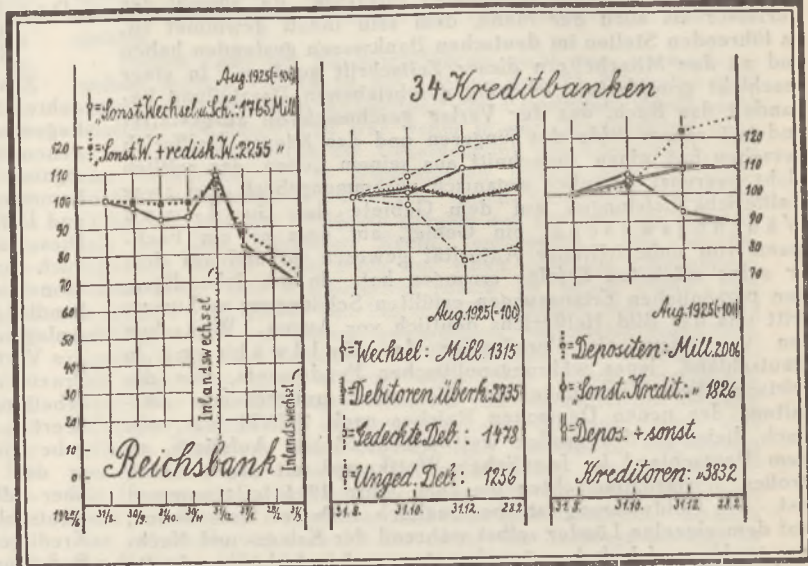 34 Kreditbanken
Aug. 1925 (=100)
"Sonst. Wechsel u. Sch.": 1765 Mill
"Sonst. W. + redisk. W. 2255 "
120
110
100
90
80
70
60
50
40
30
20
10
0
Inlandswechsel
Inlandswechsel
Reichsbank
1925/6 31/8. 30/9. 31/10. 30/11 31/12. 31/1. 28/2. 31/3.
Aug. 1925 (=100)
=Wechsel: Mill. 1315
=Debitoren überh: 2735
=Gedeckte Deb.: 1478
=Unged. Deb.: 1256
31.8. 31.10. 31.12. 28.2.
120
110
100
90
80
70
Aug. 1925 (=100)
=Depositen: Mill. 2006
=Sonst. Kredit.: " 1826
=Depos. + sonst.
Kreditoren: " 3832
31.8. 31.10. 31.12. 28.2.